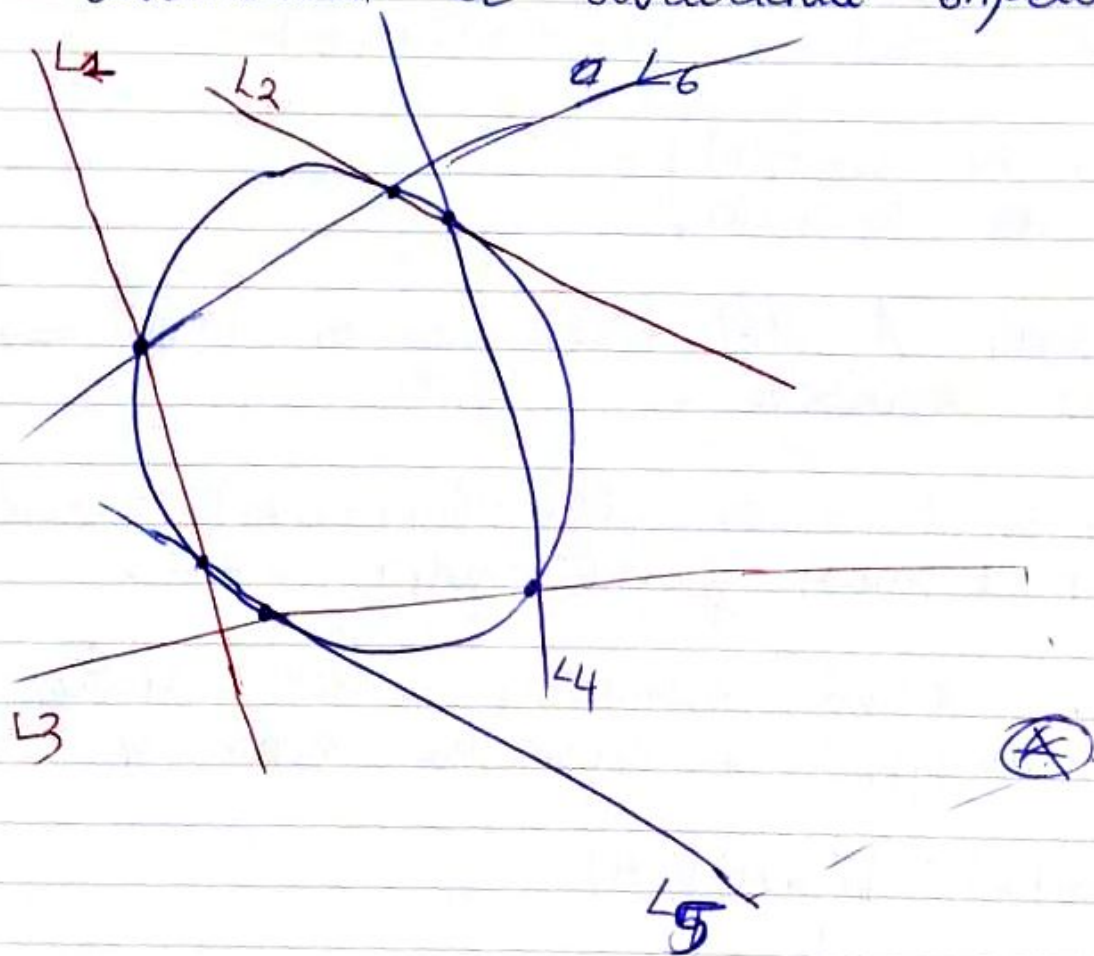 L1
L2
L6
L4
L3
A
L5